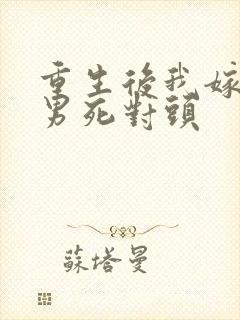 重生後我嫁
男死對頭
蘇塔曼